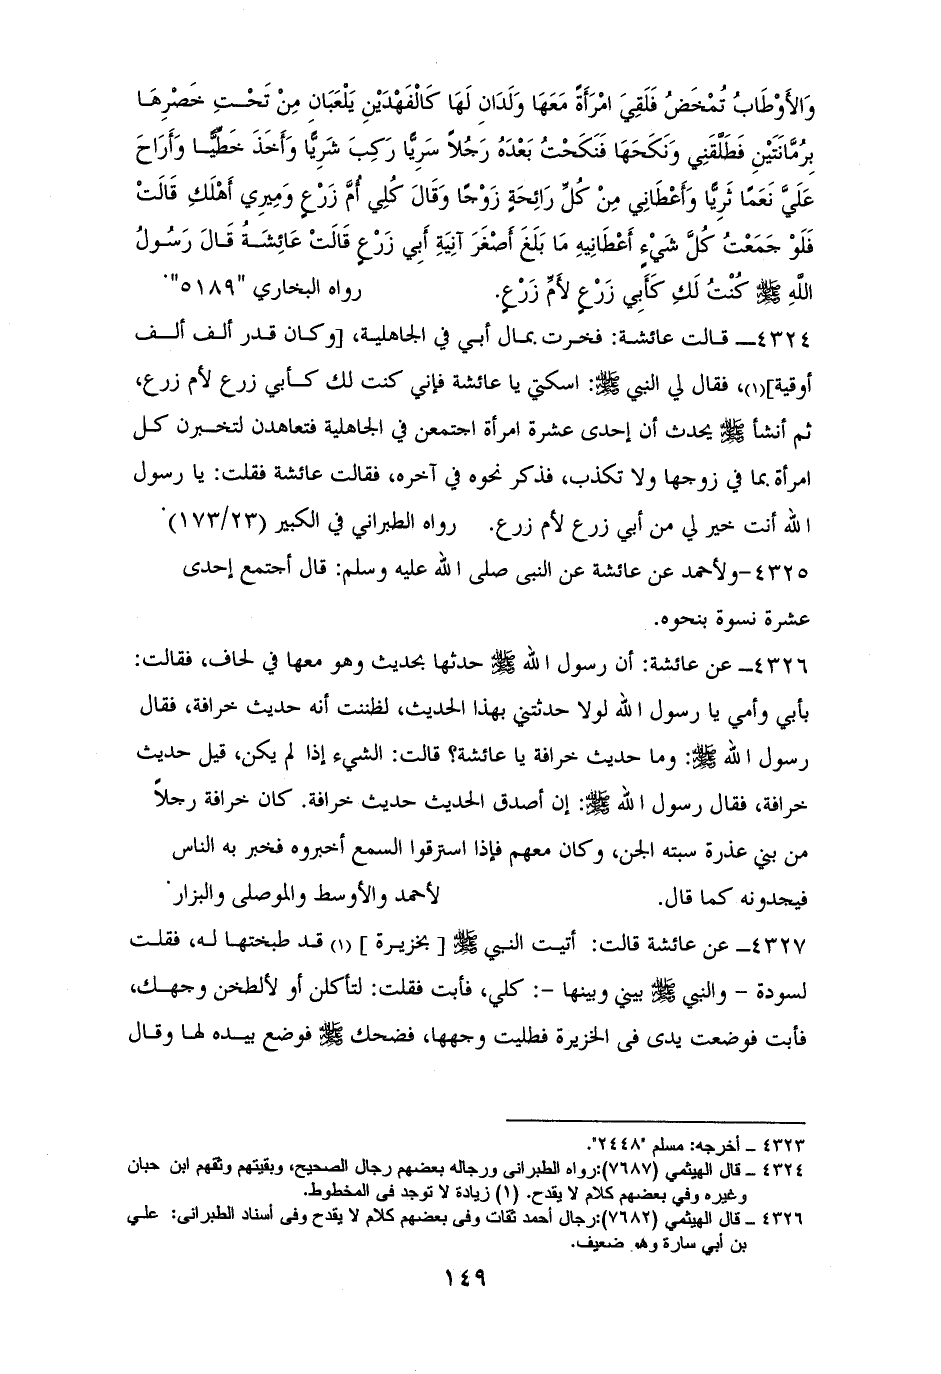 وَالأَوْطَابُ تُمْخَضُ فَلَقِيَ امْرَأَةً مَعَهَا وَلَدَانِ لَهَا كَالْفَهْدَيْنِ يَلْعَبَانِ مِنْ تَحْتِ خَصْرِهَا
بِرُمَّانَتَيْنِ فَطَلَّقَنِي وَنَكَحَهَا فَنَكَحْتُ بَعْدَهُ رَجُلاً سَرِيًّا رَكِبَ شَرِيًّا وَأَخَذَ خَطِّيًّا وَأَرَاحَ
عَلَيَّ نَعَمًا ثَرِيًّا وَأَعْطَانِي مِنْ كُلِّ رَائِحَةٍ زَوْجًا وَقَالَ كُلِي أُمَّ زَرْعٍ وَمِيرِي أَهْلَكِ قَالَتْ
فَلَوْ جَمَعْتُ كُلَّ شَيْءٍ أَعْطَانِيهِ مَا بَلَغَ أَصْغَرَ آنِيَةِ أَبِي زَرْعٍ قَالَتْ عَائِشَةُ قَالَ رَسُولُ
اللَّهِ ﷺ كُنْتُ لَكِ كَأَبِي زَرْعٍ لأُمِّ زَرْعٍ. رواه البخاري "٥١٨٩"
٤٣٢٤ـ قالت عائشة: فخرت بمال أبي في الجاهلية، [وكان قدر ألف ألف
أوقية](١)، فقال لي النبي ﷺ: اسكتي يا عائشة فإني كنت لك كأبي زرع لأم زرع،
ثم أنشأ ﷺ يحدث أن إحدى عشرة امرأة اجتمعن في الجاهلية فتعاهدن لتخبرن كل
امرأة بما في زوجها ولا تكذب، فذكر نحوه في آخره، فقالت عائشة فقلت: يا رسول
الله أنت خير لي من أبي زرع لأم زرع. رواه الطبراني في الكبير (١٧٣/٢٣)
٤٣٢٥-ولأحمد عن عائشة عن النبى صلى الله عليه وسلم: قال أجتمع إحدى
عشرة نسوة بنحوه.
٤٣٢٦ـ عن عائشة: أن رسول الله ﷺ حدثها بحديث وهو معها في لحاف، فقالت:
بأبي وأمي يا رسول الله لولا حدثتني بهذا الحديث، لظننت أنه حديث خرافة، فقال
رسول الله ﷺ: وما حديث خرافة يا عائشة؟ قالت: الشيء إذا لم يكن، قيل حديث
خرافة، فقال رسول الله ﷺ: إن أصدق الحديث حديث خرافة. كان خرافة رجلاً
من بني عذرة سبته الجن، وكان معهم فإذا استرقوا السمع أخبروه فخبر به الناس
فيجدونه كما قال. لأحمد والأوسط والموصلى والبزار
٤٣٢٧ـ عن عائشة قالت: أتيت النبي ﷺ [ بخزيرة ] (١) قد طبختها له، فقلت
لسودة - والنبي ﷺ بيني وبينها -: كلي، فأبت فقلت: لتأكلن أو لألطخن وجهك،
فأبت فوضعت يدى فى الخزيرة فطليت وجهها، فضحك ﷺ فوضع بيده لها وقال
٤٣٢٣ ـ أخرجه: مسلم "٢٤٤٨".
٤٣٢٤ ـ قال الهيثمي (٧٦٨٧):رواه الطبرانى ورجاله بعضهم رجال الصحيح، وبقيتهم وثقهم ابن حبان
وغيره وفي بعضهم كلام لا يقدح. (١) زيادة لا توجد فى المخطوط.
٤٣٢٦ ـ قال الهيثمي (٧٦٨٢):رجال أحمد ثقات وفى بعضهم كلام لا يقدح وفى أسناد الطبرانى: علي
بن أبي سارة وهو ضعيف.
١٤٩